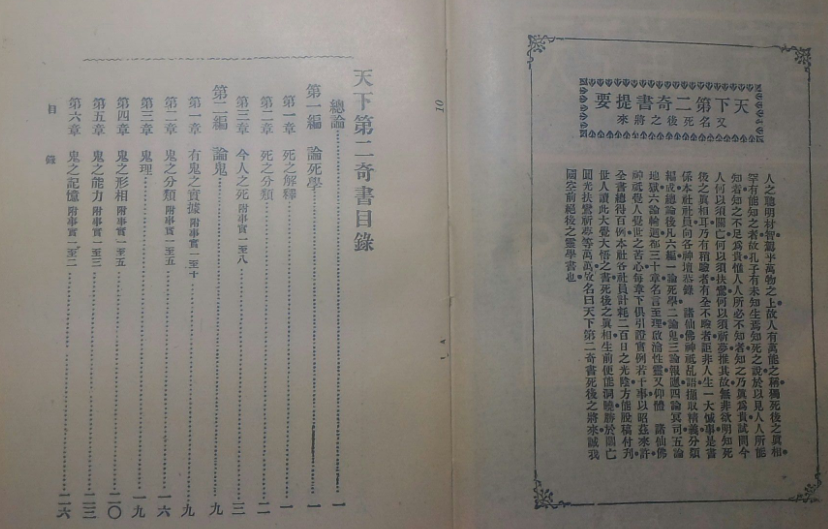 天下第二奇書提要
又名死後之將來
人之聰明材智靈乎萬物之上故人有萬能之稱獨死後之眞相
罕有能知之者故孔子有未知生焉知死之說於以見人人所能
知者知之不足爲貴惟人人所必不知者知之乃眞爲貴試問今
人何以須關亡何以須扶鸞何以須祈夢推其故無非欲明知死
後之眞相耳乃有稍驗者有全不驗者詎非人生一大憾事是書
係本社社員向各神壇恭錄 諸仙佛神祇乩語擷取精義分類
編成總論後凡六編一論死學二論鬼三論報應四論冥司五論
地獄六論輪迴都三十章名言至理啟瀹性靈又仰體 諸仙佛
神祇覺人覺世之苦心每章下俱引證實例若干事以昭茲來許
全書總得百例本社各社員計耗二百日之光陰方能脫稿付刊
世人讀此大覺大悟之書死後之眞相生前便能洞曉勝於關亡
圓光扶鸞祈夢等萬萬故名曰天下第二奇書死後之將來誠我
國空前絕後之靈學書也
天下第二奇書目錄
總論……一
第一編 論死學……一
第一章 死之解釋……一
第二章 死之分類……二
第三章 今人之死 附事實一至八……三
第二編 論鬼……九
第一章 有鬼之實據 附事實一至十……九
第二章 鬼之分類 附事實一至五……一六
第三章 鬼理……一九
第四章 鬼之形相 附事實一至五……二〇
第五章 鬼之能力 附事實一至三……二三
第六章 鬼之記憶 附事實一至二……二六
目錄